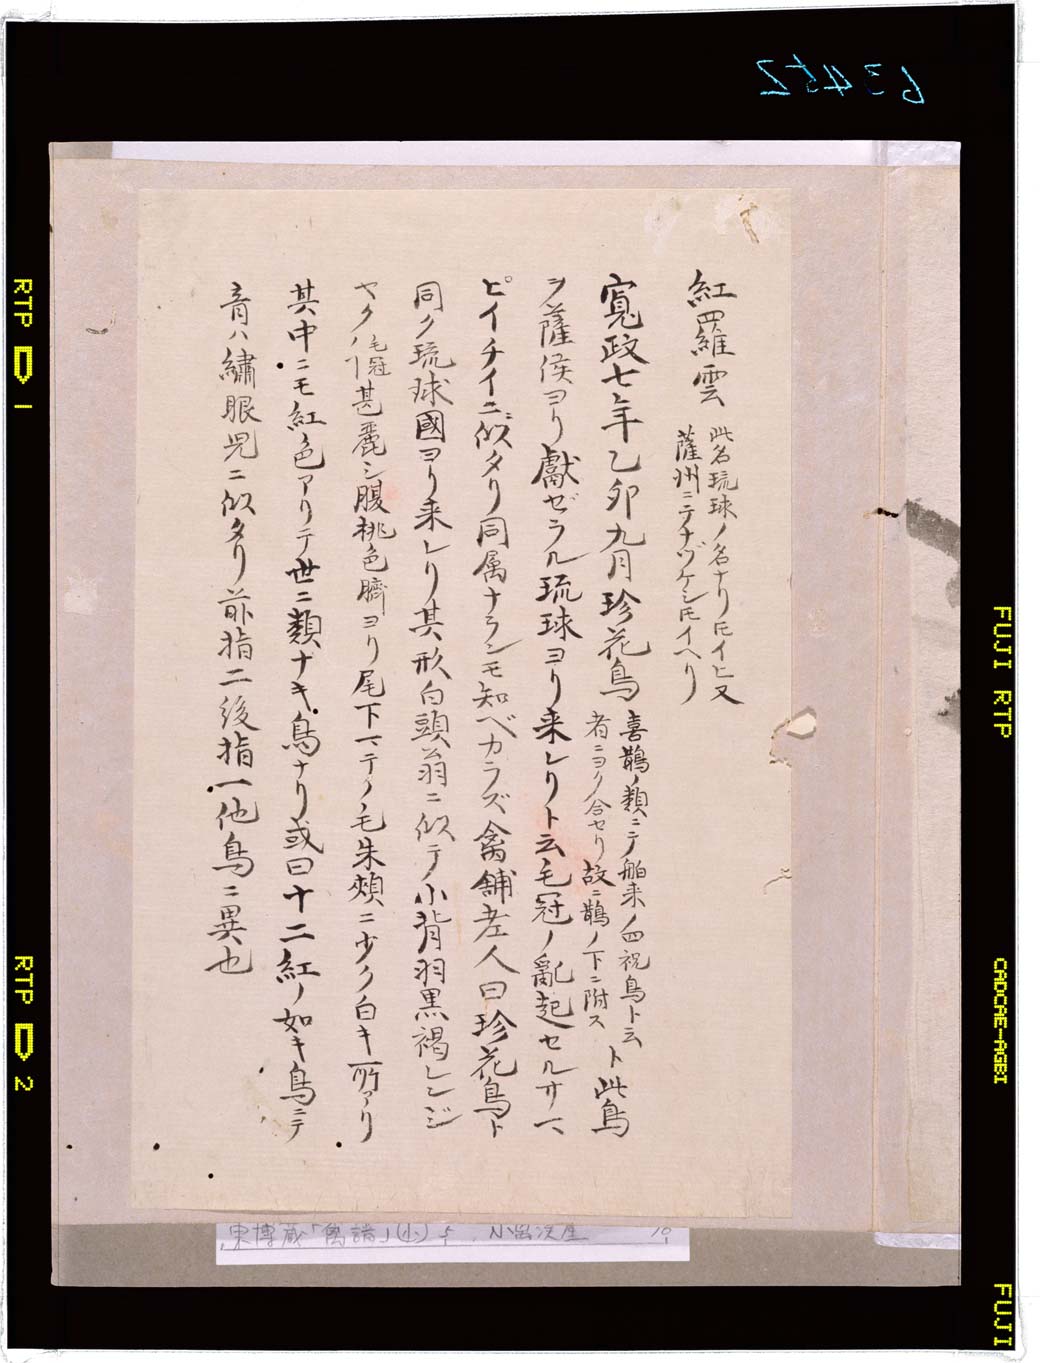 63452
紅羅雲
此名琉球ノ名ナリ𪜈イヒ又
薩州ニテナヅケシ𪜈イヘリ
寬政七年乙卯九月珍花鳥
喜鵲ノ類ニテ舶来ノ四祝鳥ト云
者ニヨク合セリ故ニ鵲ノ下ニ附ス
ト此鳥
ヲ薩侯ヨリ獻ゼラル琉球ヨリ来レリト云毛冠ノ亂起セルサマ
ピイチイニ似タリ同属ナランモ知ベカラズ禽舖老人曰珍花鳥ト
同ク琉球國ヨリ来レリ其形白頭翁ニ似テ小背羽黒褐レンジ
ヤクノ毛冠ヿ甚麗シ腹桃色臍ヨリ尾下マテノ毛朱頰ニ少ク白キ所アリ
其中ニモ紅色アリテ世ニ類ナキ鳥ナリ或曰十二紅ノ如キ鳥ニテ
音ハ繡眼児ニ似タリ前指二後指一他鳥ニ異也
東博蔵「禽譜」(小)
10
RTP 1
RTP 2
FUJI RTP
FUJI